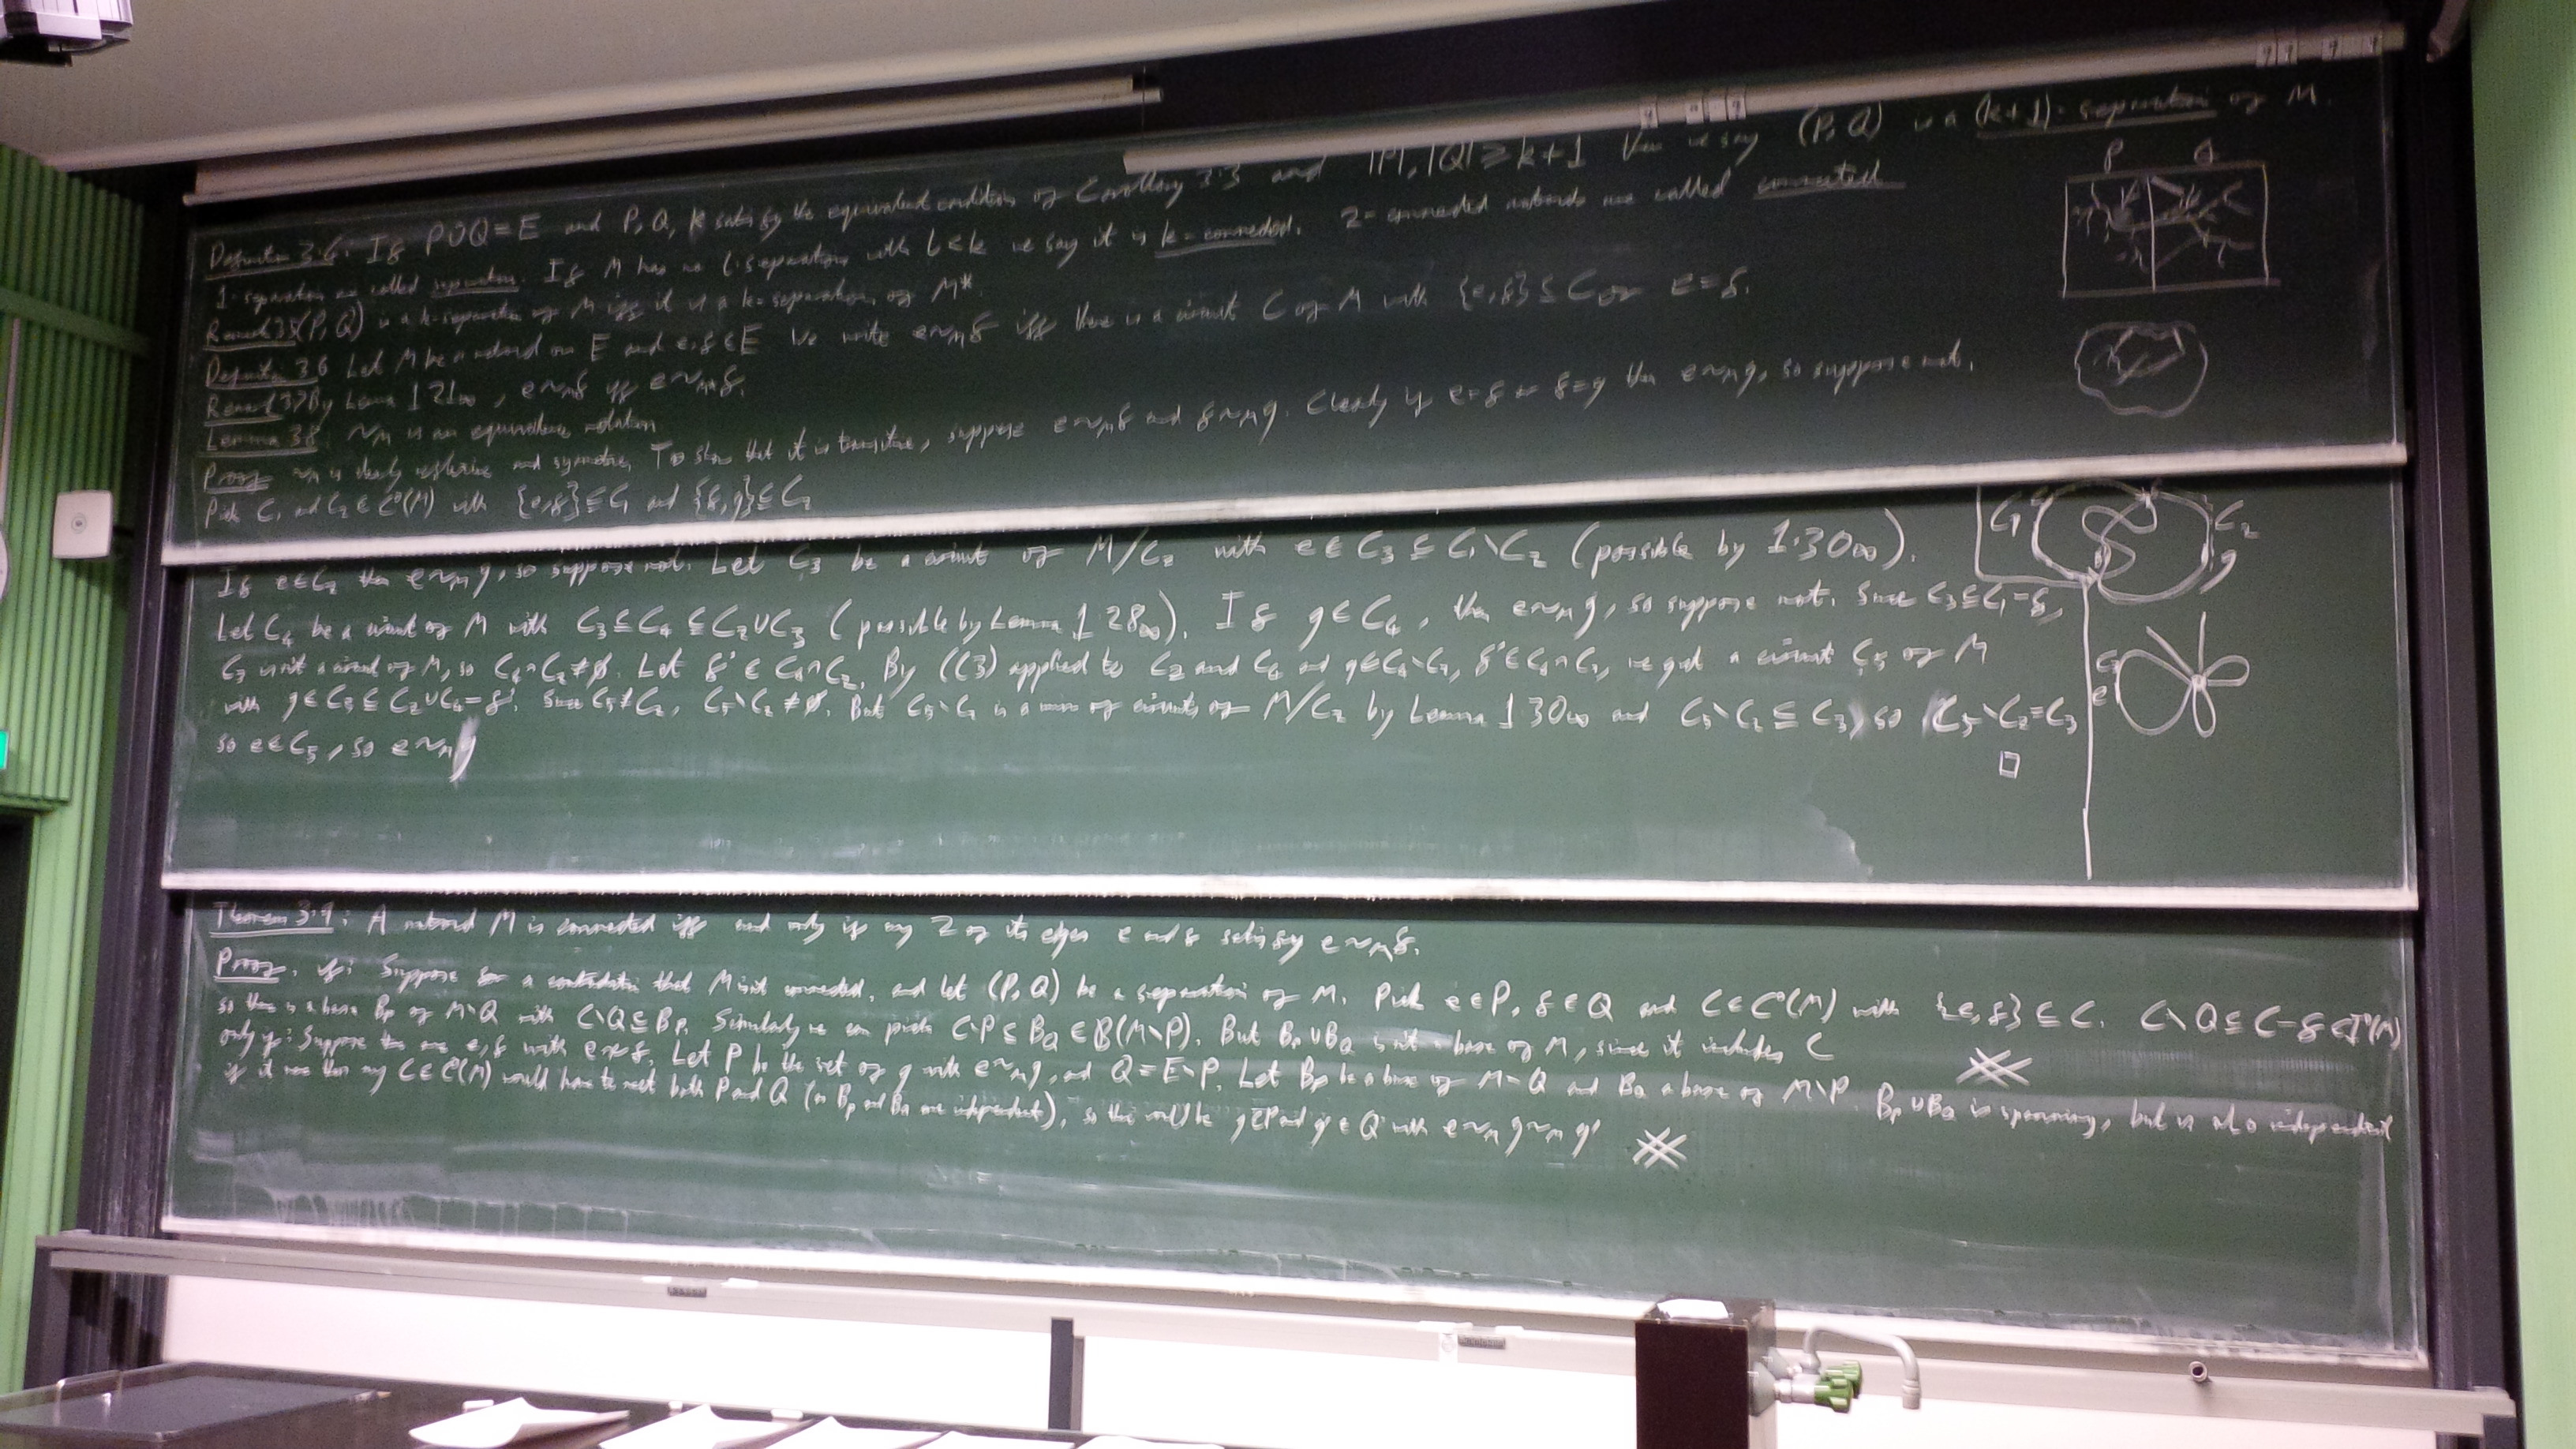 Definition 3.4: If P∪̇Q=E and P, Q, k satisfy the equivalent conditions of Corollary 3.3 and |P|, |Q| ≥ k+1 then we say (P, Q) is a (k+1)-separation of M.
1-separations are called separations. If M has no l-separation with l<k we say it is k-connected. 2-connected matroids are called connected
Remark 3.5 (P, Q) is a k-separation of M iff it is a k-separation of M*.
Definition 3.6 Let M be a matroid on E and e,f∈E We write e~_M f iff there is a circuit C of M with {e,f}⊆C or e=f.
Remark 3.7 By Lemma 1.21∞, e~_M f iff e~_M* f.
Lemma 3.8: ~_M is an equivalence relation.
Proof ~_M is clearly reflexive and symmetric. To show that it is transitive, suppose e~_M f and f~_M g. Clearly if e=f or f=g then e~_M g, so suppose not.
Pick C₁ and C₂∈C(M) with {e,f}⊆C₁ and {f,g}⊆C₂
If e∈C₂ then e~_M g, so suppose not. Let C₃ be a circuit of M/C₂ with e∈C₃⊆C₁\C₂ (possible by 1.30∞).
Let C₄ be a circuit of M with C₃⊆C₄⊆C₂∪C₃ (possible by Lemma 1.28∞). If g∈C₄, then e~_M g, so suppose not. Since C₃⊆C₁-f,
C₃ isn't a circuit of M, so C₄∩C₂≠∅. Let f'∈C₄∩C₂. By (C3) applied to C₂ and C₄ and g∈C₂\C₄, f'∈C₄∩C₂, we get a circuit C₅ of M
with g∈C₅⊆C₂∪C₄-f'. Since C₅≠C₂, C₅\C₂≠∅. But C₅\C₂ is a union of circuits of M/C₂ by Lemma 1.30∞ and C₅\C₂⊆C₃, so C₅\C₂=C₃
so e∈C₅, so e~_M g
□
P Q
C₁ C₂
g
C₃
e
Theorem 3.9: A matroid M is connected iff and only if any 2 of its edges e and f satisfy e~_M f.
Proof. if: Suppose for a contradiction that M isn't connected, and let (P,Q) be a separation of M. Pick e∈P, f∈Q and C∈C(M) with {e,f}⊆C. C\Q⊆C-f∈I(M)
so there is a base B_P of M\Q with C\Q⊆B_P. Similarly we can pick C\P⊆B_Q∈B(M\P). But B_P∪B_Q isn't a base of M, since it includes C
only if: Suppose there are e,f with e≁f. Let P be the set of g with e~_M g, and Q=E\P. Let B_P be a base of M\Q and B_Q a base of M\P. B_P∪B_Q is spanning, but is also independent
if it were then any C∈C(M) would have to meet both P and Q (as B_P and B_Q are independent), so there would be g∈P and g'∈Q with e~_M g~_M g'